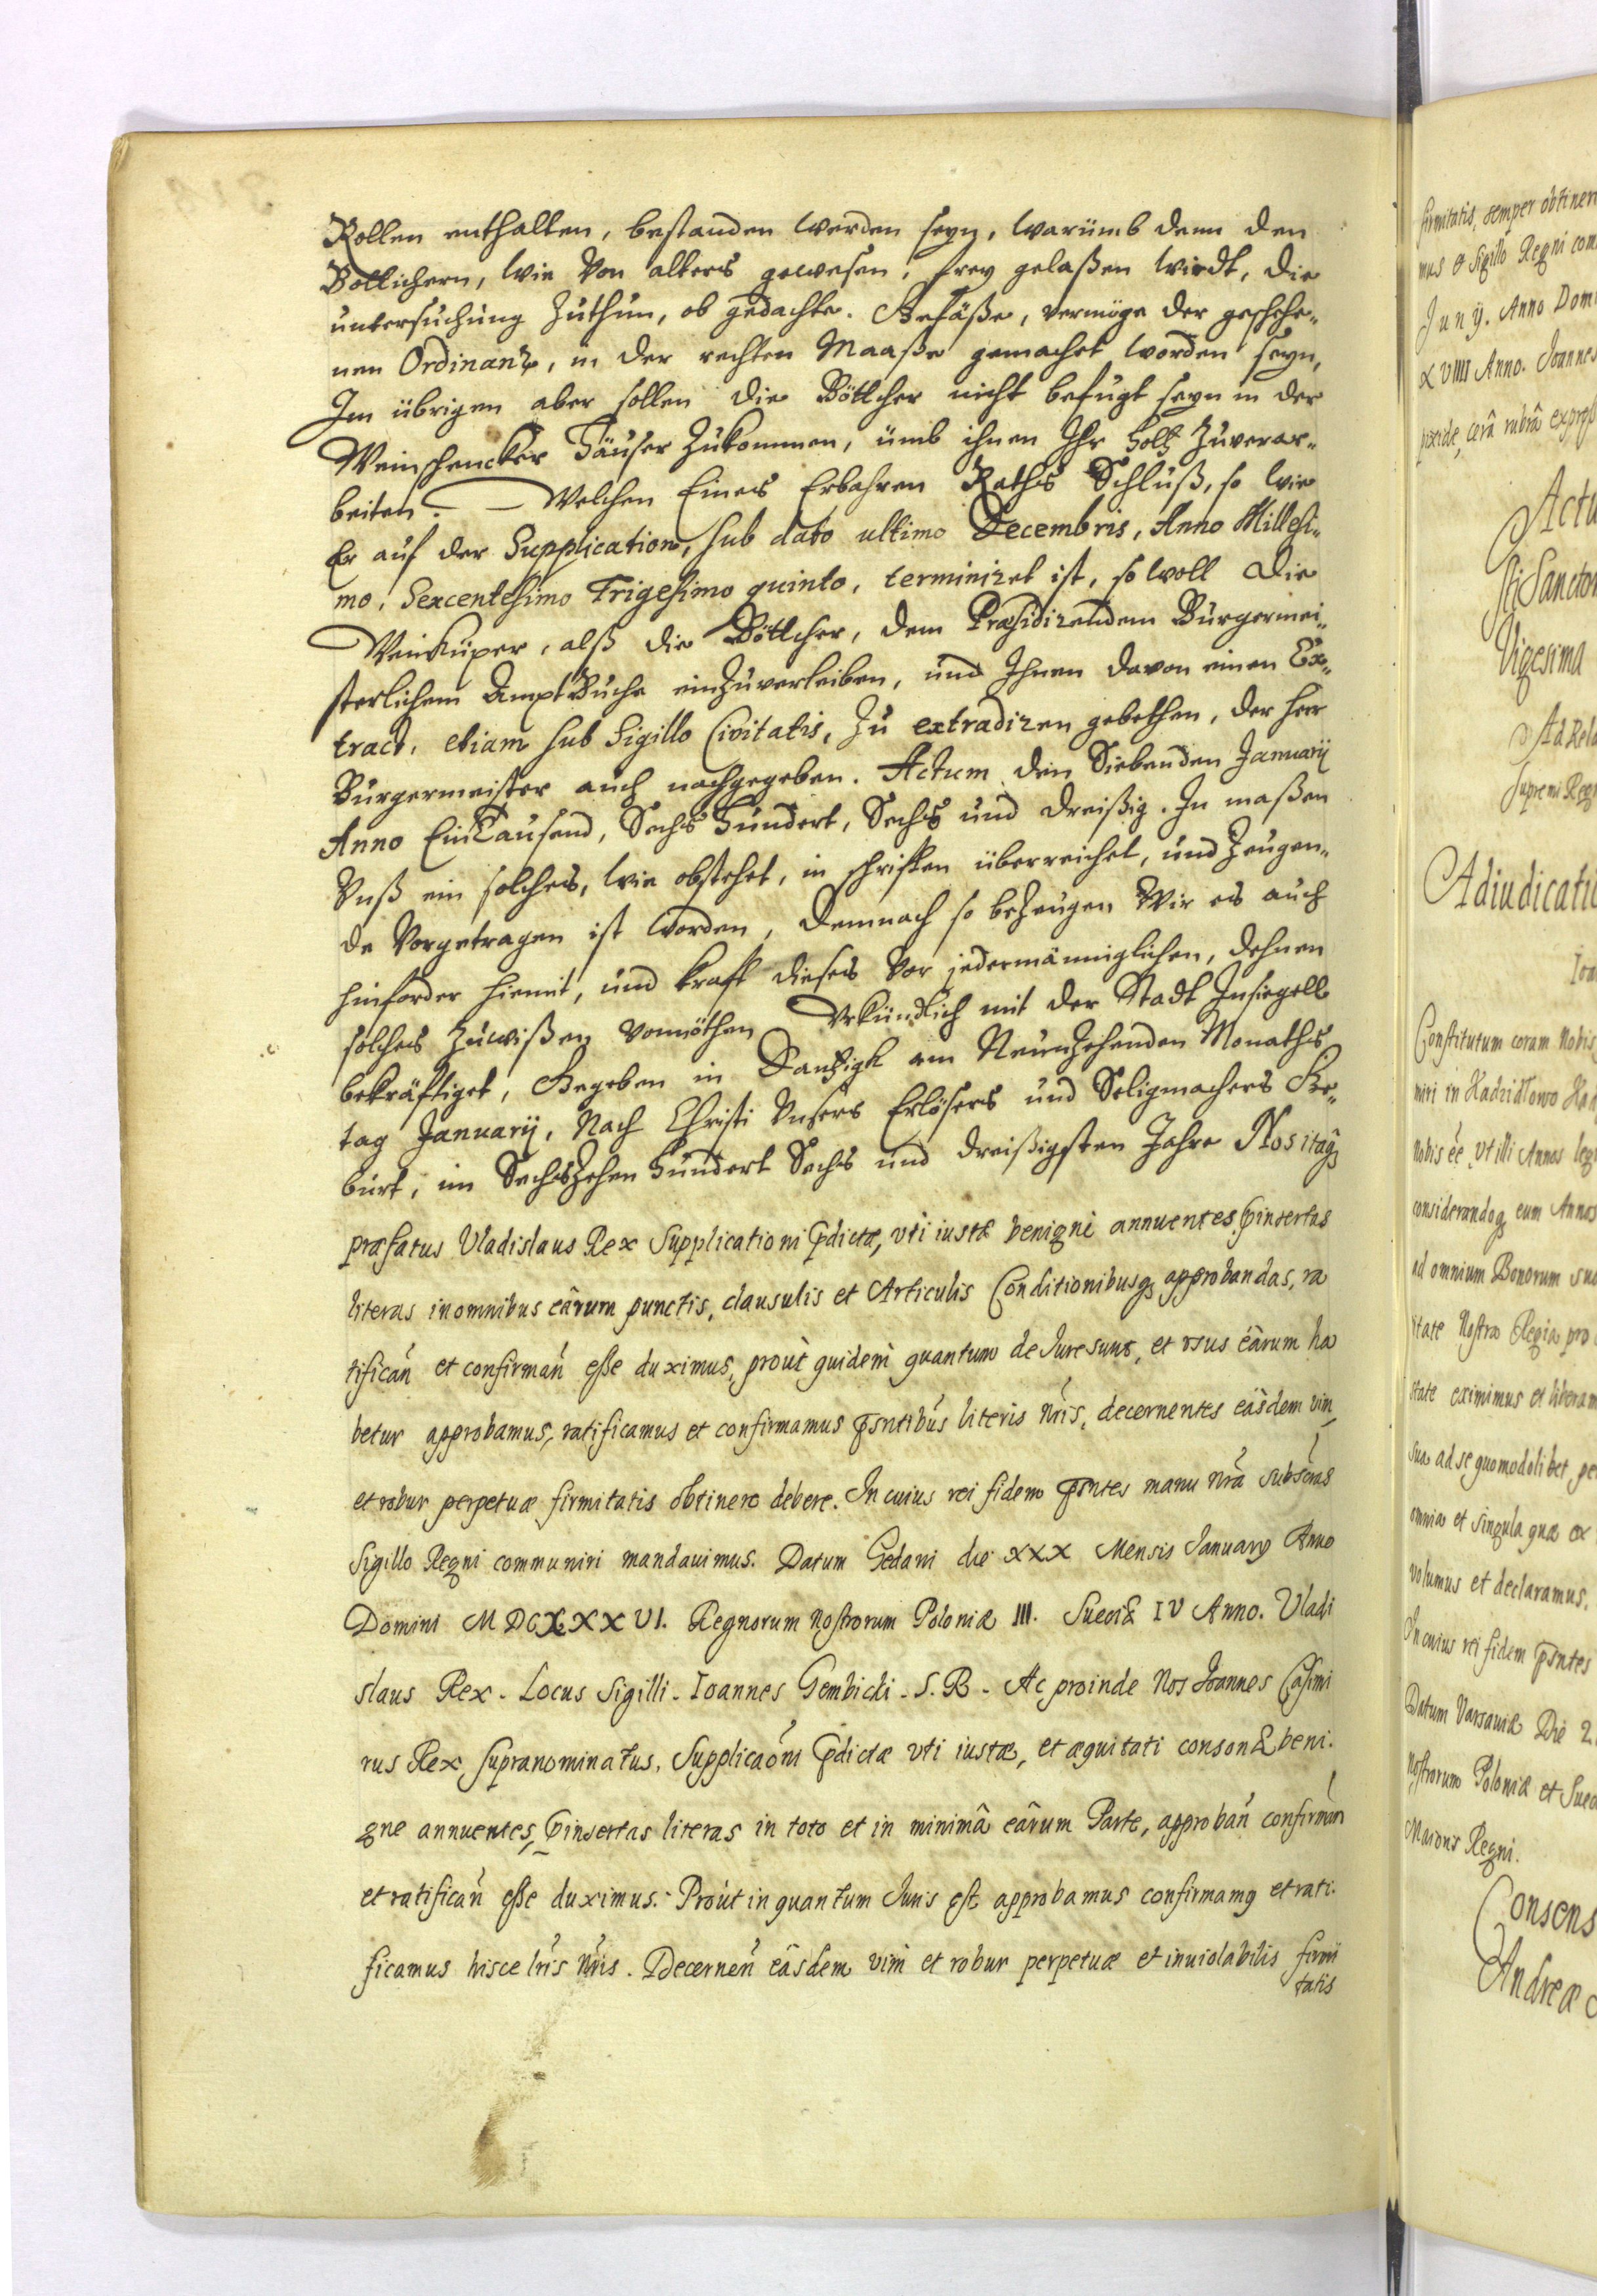 Rollen enthalten, bestanden werden seyn, warümb denn den
Bottichern, wie von alters gewesen, frey gelaßen wirdt, die
untersuchung zuthun, ob gedachte. Gefäße, vermöge der geschehe„
nen Ordinantz, in der rechten Maaße gemachet worden seyn,
Im übrigen aber sollen die Böttcher nicht befugt seyn in der
Weinschencker Häuser zukommen, ümb ihnen Ihr Holtz zuverar„
beiten. — Welchen Eines Erbahren Raths Schluß, so wie
Er auf der Supplication, sub dato ultimo Decembris, Anno Millesi„
mo, Sexcentesimo Trigesimo quinto, terminiret ist, so woll die
Weinküper, alß die Böttcher, dem Præsidirendem Bürgermei„
sterlichem Ampt Buche einzuverleiben, und Ihnen davon einen Ex„
tract, etiam sub Sigillo Civitatis, zu extradiren gebethen, der Herr
Bürgermeister auch nachgegeben. Actum den Siebenden Januarij
Anno Ein Tausend, Sechs Hundert, Sechs und dreißig. In maßen
Vnß ein solches, wie obstehet, in schriften überreichet, und Zeugen„
de Vorgetragen ist worden, Demnach so bezeugen Wir es auch
hinforder hiemit, und kraft dieses vor jedermänniglichen, dehnen
solches zuwißen vonnöthen Vrkündlich mit der Stadt Insiegell
bekräftiget, Gegeben in Dantzigk am Neunzehenden Monaths
tag Januarij, Nach Christi Vnsers Erlösers und Seligmachers Ge„
burt, im Sechszehen Hundert Sechs und dreißigsten Jahre Nos itaq3
præfatus Vladislaus Rex Supplicationi p̄dictæ, vti iustæ benignè annuentes p̄insertas
literas in omnibus eârum punctis, clausulis et Articulis Conditionibusq3 approbandas, ra
tifican̄ et confirman̄ esse duximus, proùt quidem quantum de Jure sunt, et vsus eârum ha
betur approbamus, ratificamus et confirmamus p̄sntibus literis nris, decernentes eâsdem vim
et robur perpetuæ firmitatis obtinere debere. In cuius rei fidem p̄sntes manu nrâ subscrias
Sigillo Regni communiri mandauimus. Datum Gedani die XXX Mensis Januarij Anno
Domini MDCXXXVI. Regnorum nostrorum Poloniæ III. Sueciæ IV Anno. Vladi
slaus Rex. Locus Sigilli. Ioannes Gembicki. S. R. Ac proinde Nos Joannes Casimi
rus Rex supranominatus, Supplicaoni p̄dictæ vti iustæ, et æquitati consonæ beni.
gne annuentes, p̄insertas literas in toto et in minimâ eârum Parte, approban̄ confirman̄
et ratifican̄ esse duximus. Proùt in quantum Juris est approbamus confirmamq et rati.
ficamus hisce lris nris. Decernen̄ eâsdem vim et robur perpetuæ et inuiolabilis firmi
tatis
firmitatis, semper obtinere
mus & Sigillo Regni com
Junij. Anno Domi
XVIIII Anno. Joannes
pixide, cerâ rubrâ express
Actu
sti Sanctor
Vigesima
Ad Rela
Supremi Reg
Adiudicatio
Ioa
Constitutum coram Nobis
nobis eē, vt illi Annos leg
considerandoq3 eum Annos
ad omnium Bonorum suo
itate Nostra Regia pro
state eximimus et liberam
sua ad se quomodolibet pe
omnia et singula quæ ex
volumus et declaramus.
In cuius rei fidem p̄sntes
Datum Varsauiæ Die 2
Nostrorum Poloniæ et Suec
Maioris Regni.
Consens
Andreæ